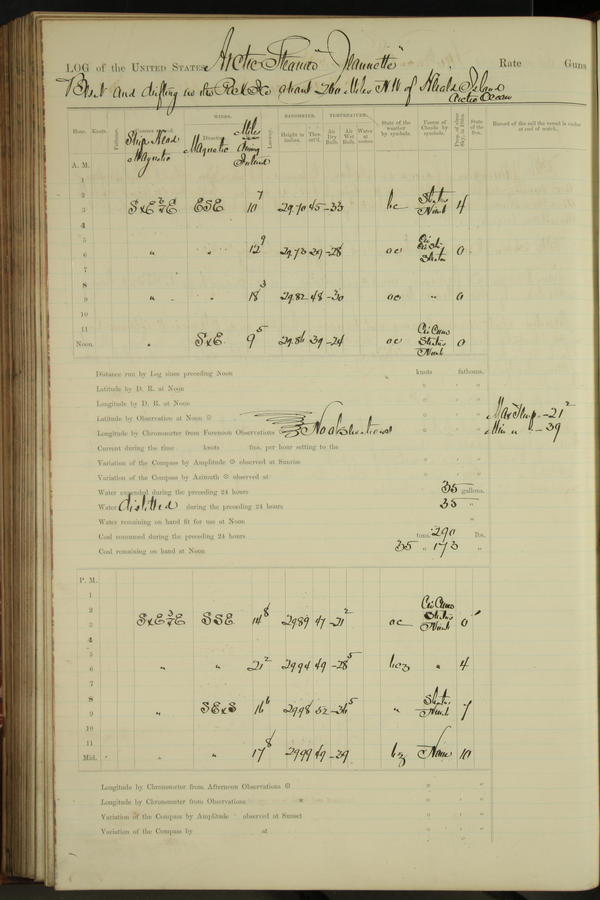 LOG of the UNITED STATES Arctic Steamer "Jeannette" Rate Guns
Beset and drifting in the Pack Ice about 260 Miles NW of Herald Island
Arctic Ocean
Hour. Knots. Fathoms. Ship's Head Magnetic WINDS. Direction Magnetic Miles during Interval Leeway. BAROMETER. Height in inches. Ther. att'd. TEMPERATURE. Air Dry Bulb. Air Wet Bulb. Water at surface. State of the weather by symbols. Forms of Clouds by symbols. State of the Sea. Record of the sail the vessel is under at end of watch.
A. M.
1
2
3 SxE¾E ESE 10 7 29.70 45 -33 bc Stratus Nimb 4
4
5
6 " " 12 9 29.73 39 -28 oc Cir Cir St. Stratus 0
7
8
9 " " 18 3 29.82 48 -30 oc " 0
10
11
Noon. " SxE 9 5 29.86 39 -24 oc Cir Cum Stratus Nimb 0
Distance run by Log since preceding Noon knots fathoms.
Latitude by D. R. at Noon
Longitude by D. R. at Noon
Latitude by Observation at Noon Max Temp. -21 2
Longitude by Chronometer from Forenoon Observations No observations Min " -39
Current during the time knots fms. per hour setting to the
Variation of the Compass by Amplitude observed at Sunrise
Variation of the Compass by Azimuth observed at
Water expended during the preceding 24 hours 35 gallons.
Water distilled during the preceding 24 hours 35 "
Water remaining on hand fit for use at Noon "
Coal consumed during the preceding 24 hours tons. 290 lbs.
Coal remaining on hand at Noon 35 " 173 "
P. M.
1
2
3 SxE¾E SSE 14 8 29.89 47 -21 2 oc Cir Cum Stratus Nimb 0
4
5
6 " " 21 2 29.94 49 -28 5 bcz " 4
7
8
9 " SExS 16 6 29.98 52 -36 5 " Stratus Nimb 7
10
11
Mid. " " 17 8 29.99 49 -39 bz None 10
Longitude by Chronometer from Afternoon Observations
Longitude by Chronometer from Observations
Variation of the Compass by Amplitude observed at Sunset
Variation of the Compass by at